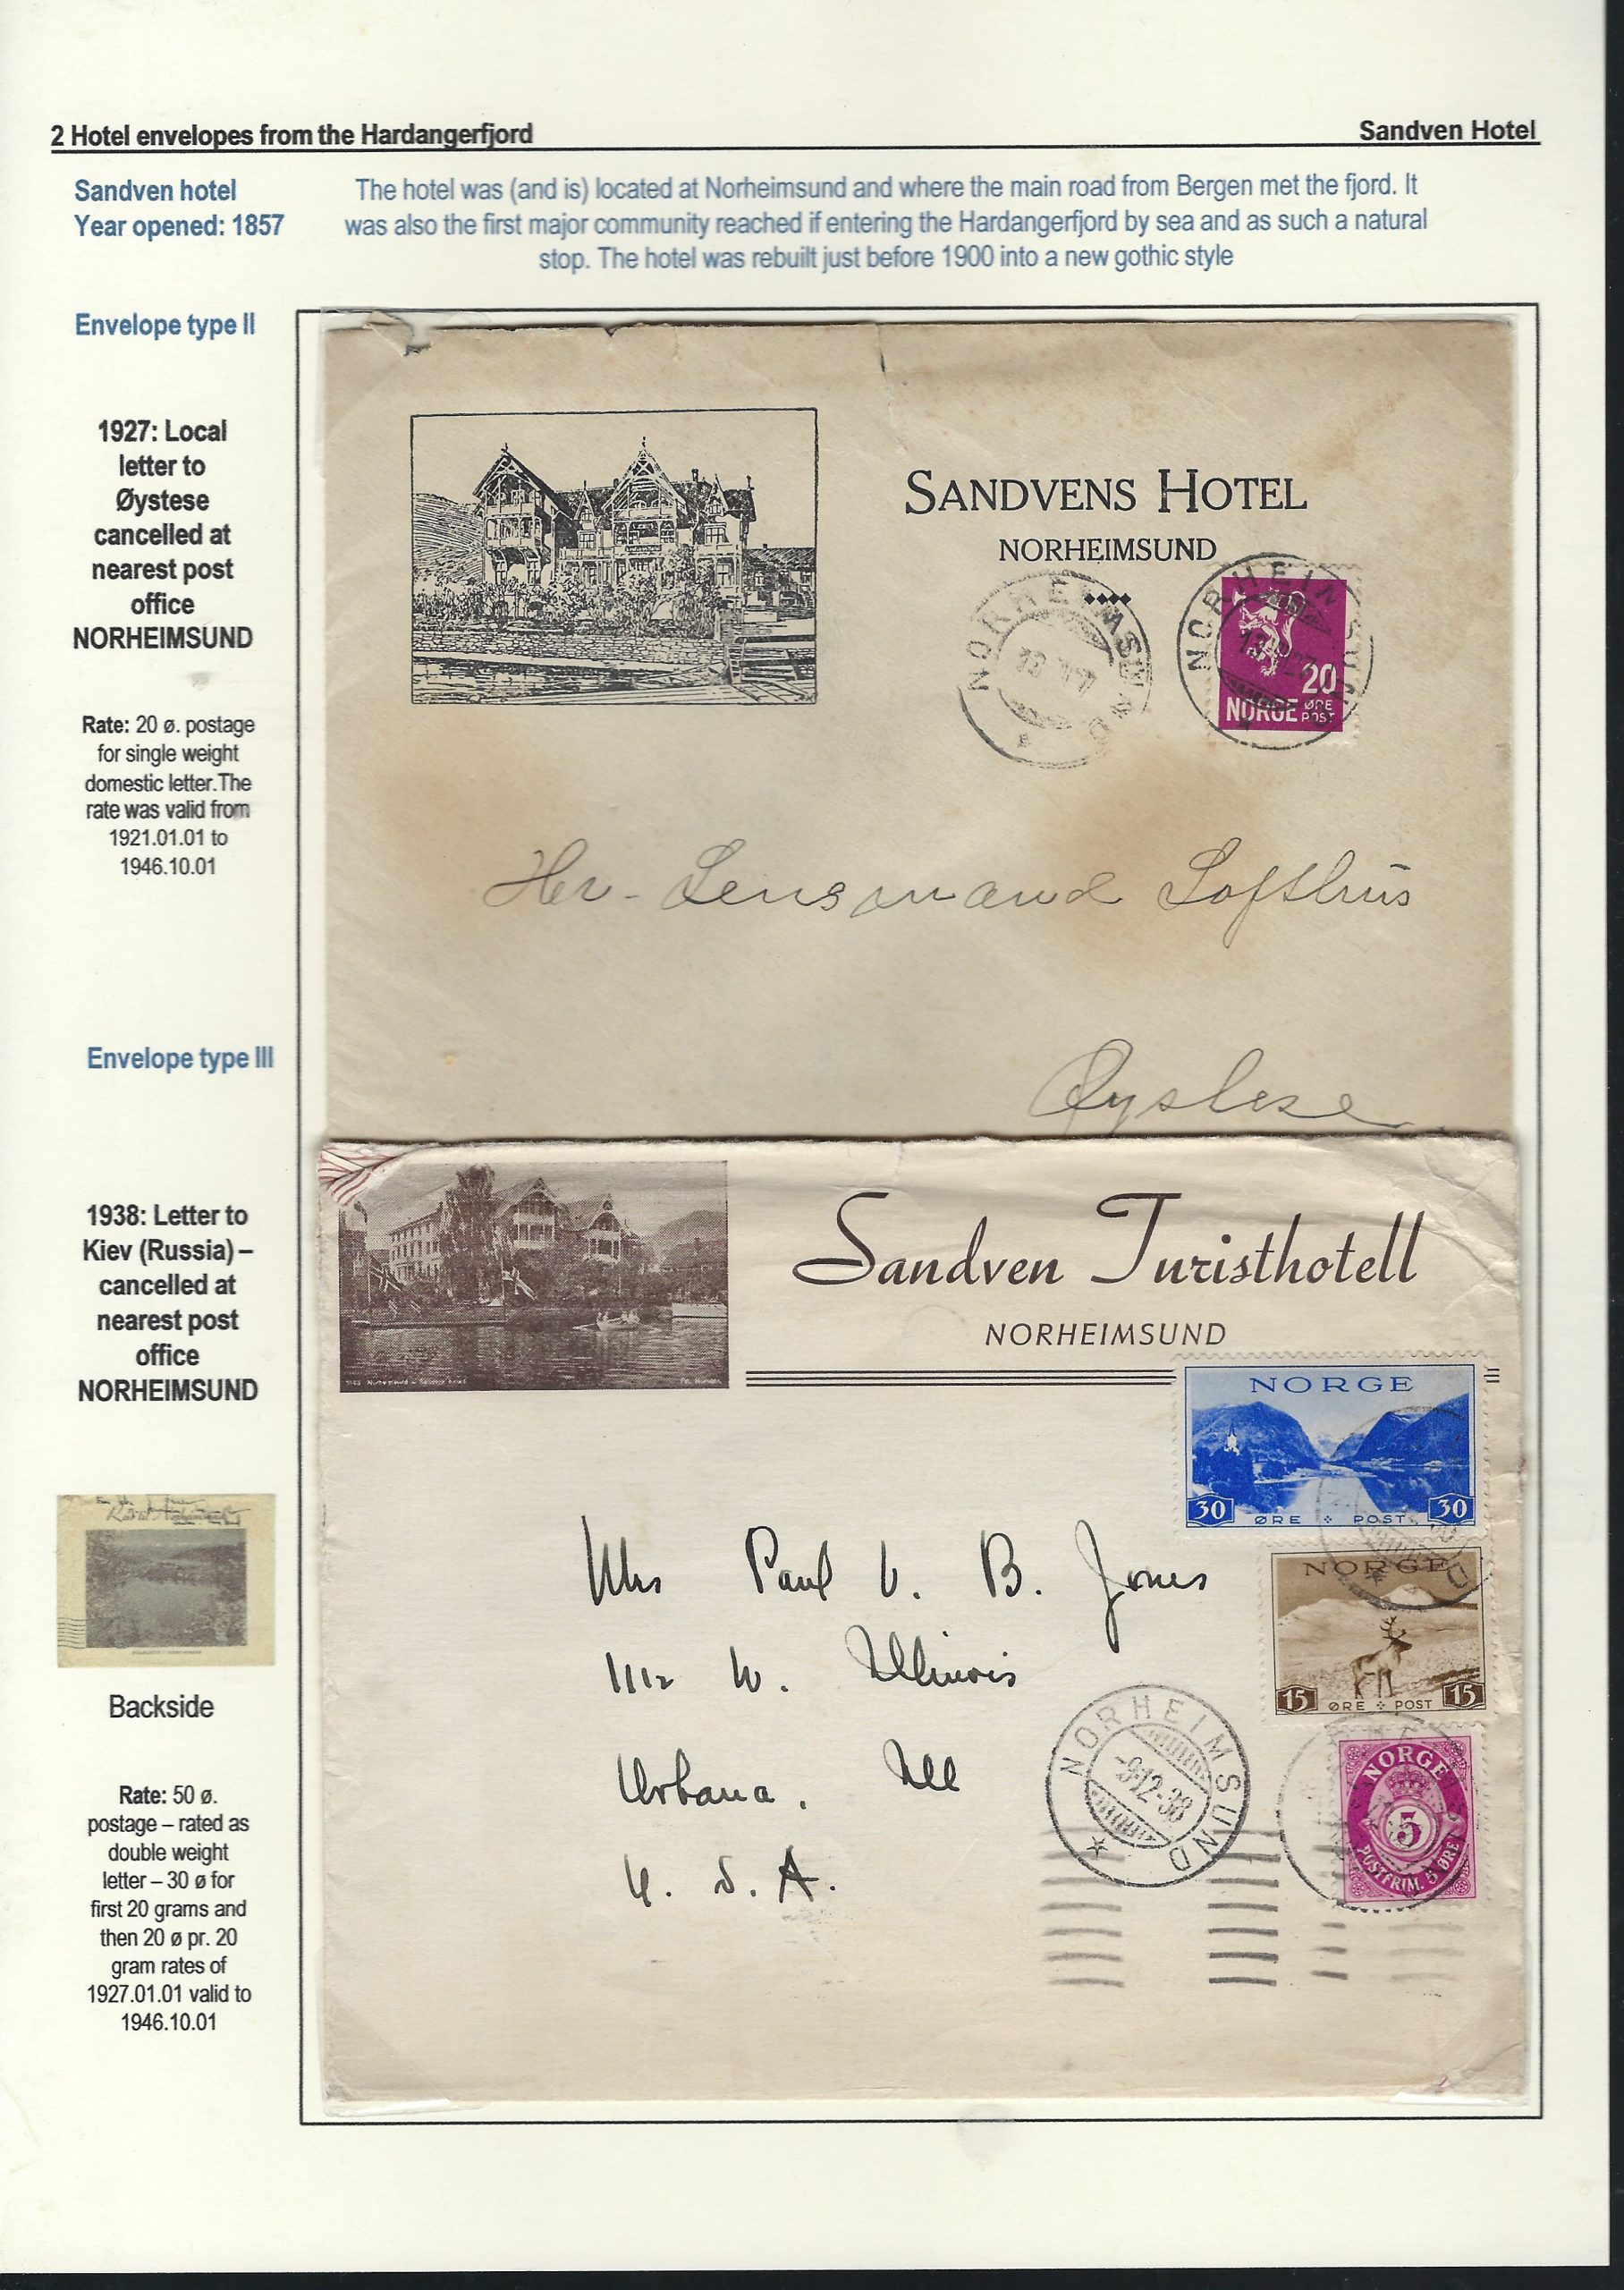 2 Hotel envelopes from the Hardangerfjord
Sandven Hotel
Sandven hotel
Year opened: 1857
The hotel was (and is) located at Norheimsund and where the main road from Bergen met the fjord. It
was also the first major community reached if entering the Hardangerfjord by sea and as such a natural
stop. The hotel was rebuilt just before 1900 into a new gothic style
Envelope type II
1927: Local
letter to
Øystese
cancelled at
nearest post
office
NORHEIMSUND
Rate: 20 ø. postage
for single weight
domestic letter.The
rate was valid from
1921.01.01 to
1946.10.01
SANDVENS HOTEL
NORHEIMSUND
NORHEIMSUND
NORHEIMSUND
20
NORGE ØRE
POST
Her - Lensmand Lofthus
Øystese
Envelope type III
1938: Letter to
Kiev (Russia) –
cancelled at
nearest post
office
NORHEIMSUND
Backside
Rate: 50 ø.
postage – rated as
double weight
letter – 30 ø for
first 20 grams and
then 20 ø pr. 20
gram rates of
1927.01.01 valid to
1946.10.01
Sandven Turisthotell
NORHEIMSUND
NORGE
30 ØRE POST 30
NORGE
15 ØRE POST 15
NORGE
5
POSTFRIM. 5 ØRE
Mrs Paul V. B. Jones
1112 W. Illinois
Urbana. Ill
U. S. A.
NORHEIMSUND
-9-12-38